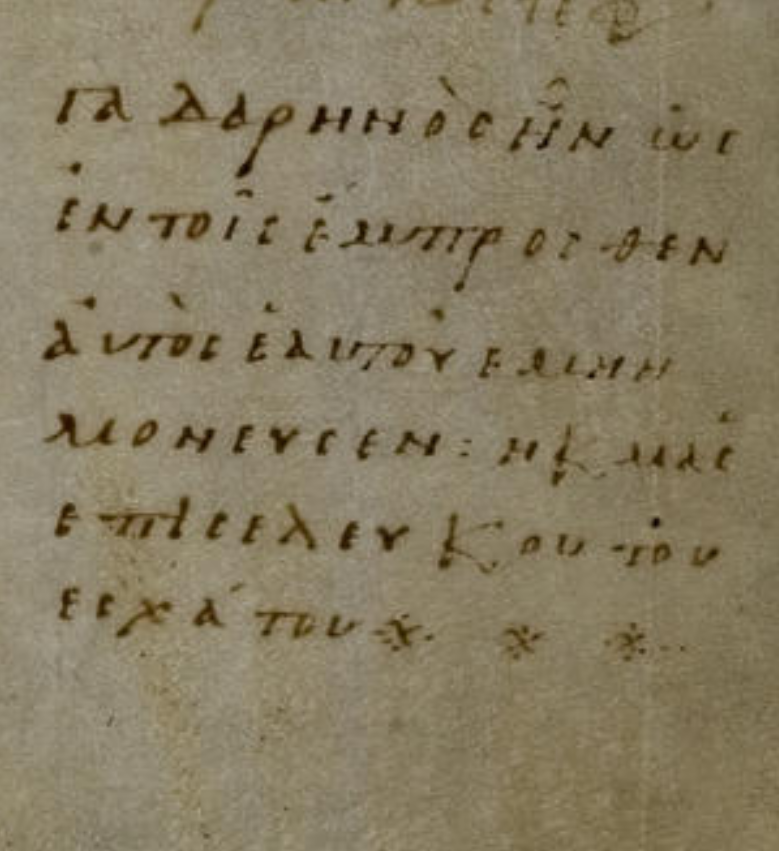 γαδαρηνὸς ἦν ὡς
ἐν τοῖς ἔμπροσθεν
ἀυτὸς ἑαυτοῦ ἐμνη
μονευσεν : ἠκμασε
ἐπὶ σελευκου του
ἐσχάτου ※ ※ ※